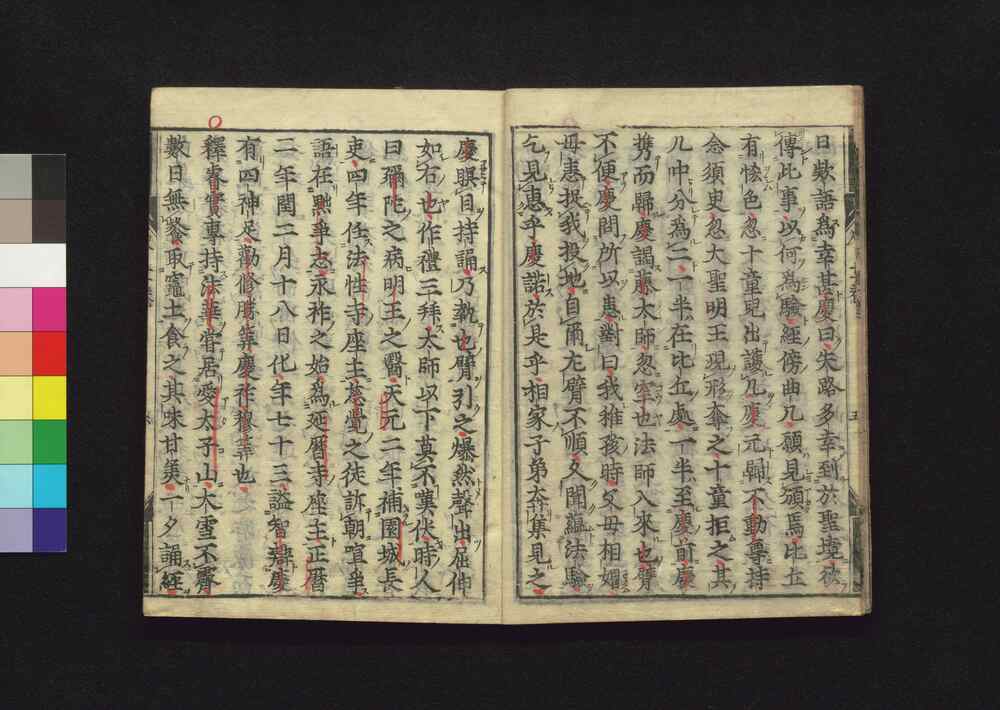 日歟語爲幸甚慶曰朱路多幸到於聖境彼
傳此事以何爲驗經傍曲几願見頒焉比丘
有悋色忽十童兒出護几慶元歸不動尊持
念須吏忽大聖明王現形奪之十童拒之其
几中分爲二一半在比丘處一半至慶前慶
携而歸慶謁藤太師忽窂也法師入來也臂
不便慶問所以惠對曰我推孩時父母相嫐
母恚扠我投地自爾左臂不順久聞蘊法驗
乞見惠乎慶諾於是乎相家子弟奔集見之
慶瞑目持誦乃執也臂引之爆然聲出屈伸
如右也作禮三拜太師以下莫不嘆伏時人
曰彌陀之病明王之醫天元二年補園城長
吏四年任法性寺座主慈覺之徒訴朝喧爭
語在黜爭志永祚之始爲延曆寺座主正曆
二年閏二月十八日化年七十三謚智辯慶
有四神足勸修勝筭慶祚穆筭也
釋睿實專持法華甞居愛太子山大雪不霽
數日無粮取竈土食之其味甘美一夕誦經